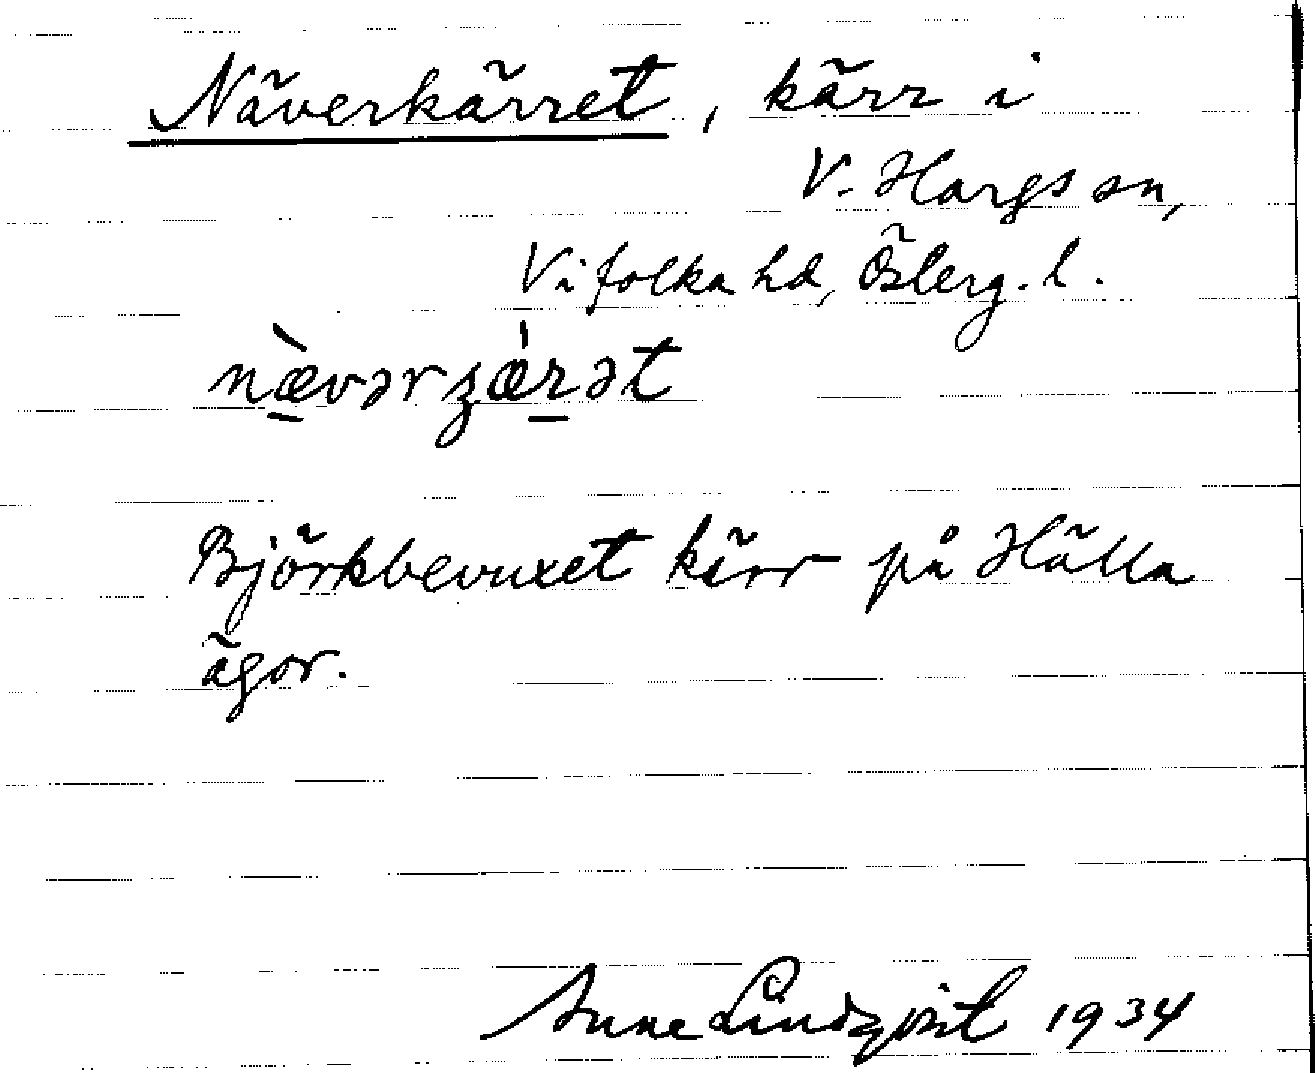 Näverkärret, kärr i
V. Hargs sn,
Vifolka hd, Österg. l.
næ̀vərʂæ̍rət
Björkbevuxet kärr på Hälla
ägor.
Sune Lindqvist 1934